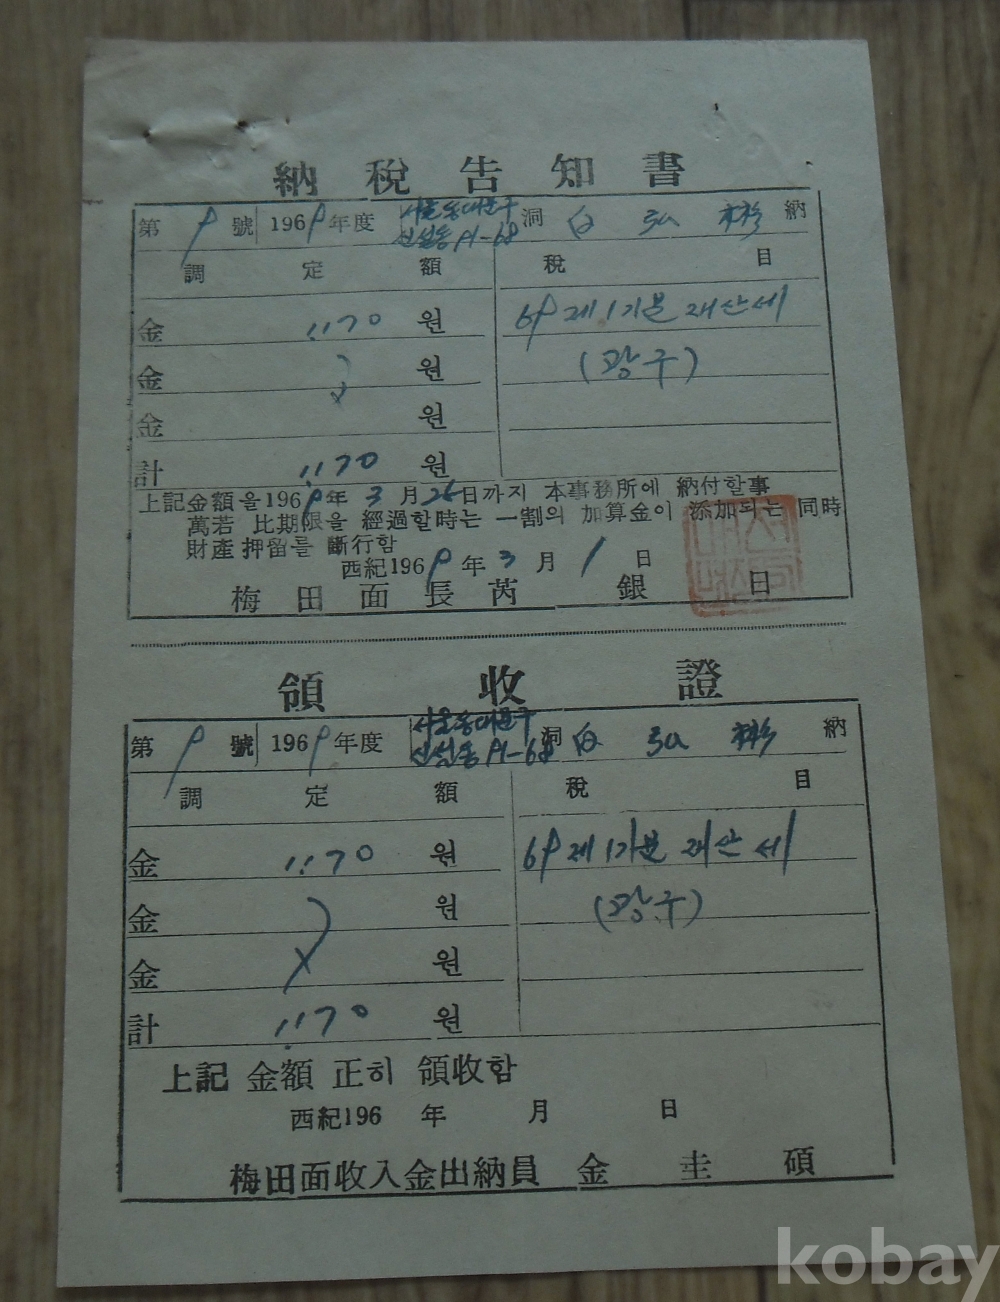 納稅告知書
第 9 號 1969年度 서울동대문구 신설동 91-68 洞 白 弘 彬 納
調定額 稅目
金 1,170 원 69 제1기분 재산세
金 원 (광구)
金 원
計 1,170 원
上記金額을 1969年 3月 26日까지 本事務所에 納付할事
萬若 比期限을 經過할時는 一割의 加算金이 添加되는 同時
財產押留를 斷行함
西紀1969年 3月 1日
梅田面長 芮 銀 日
領收證
第 9 號 1969年度 서울동대문구 신설동 91-68 洞 白 弘 彬 納
調定額 稅目
金 1,170 원 69 제1기분 재산세
金 원 (광구)
金 원
計 1,170 원
上記 金額 正히 領收함
西紀196 年 月 日
梅田面收入金出納員 金 圭 碩
kobay